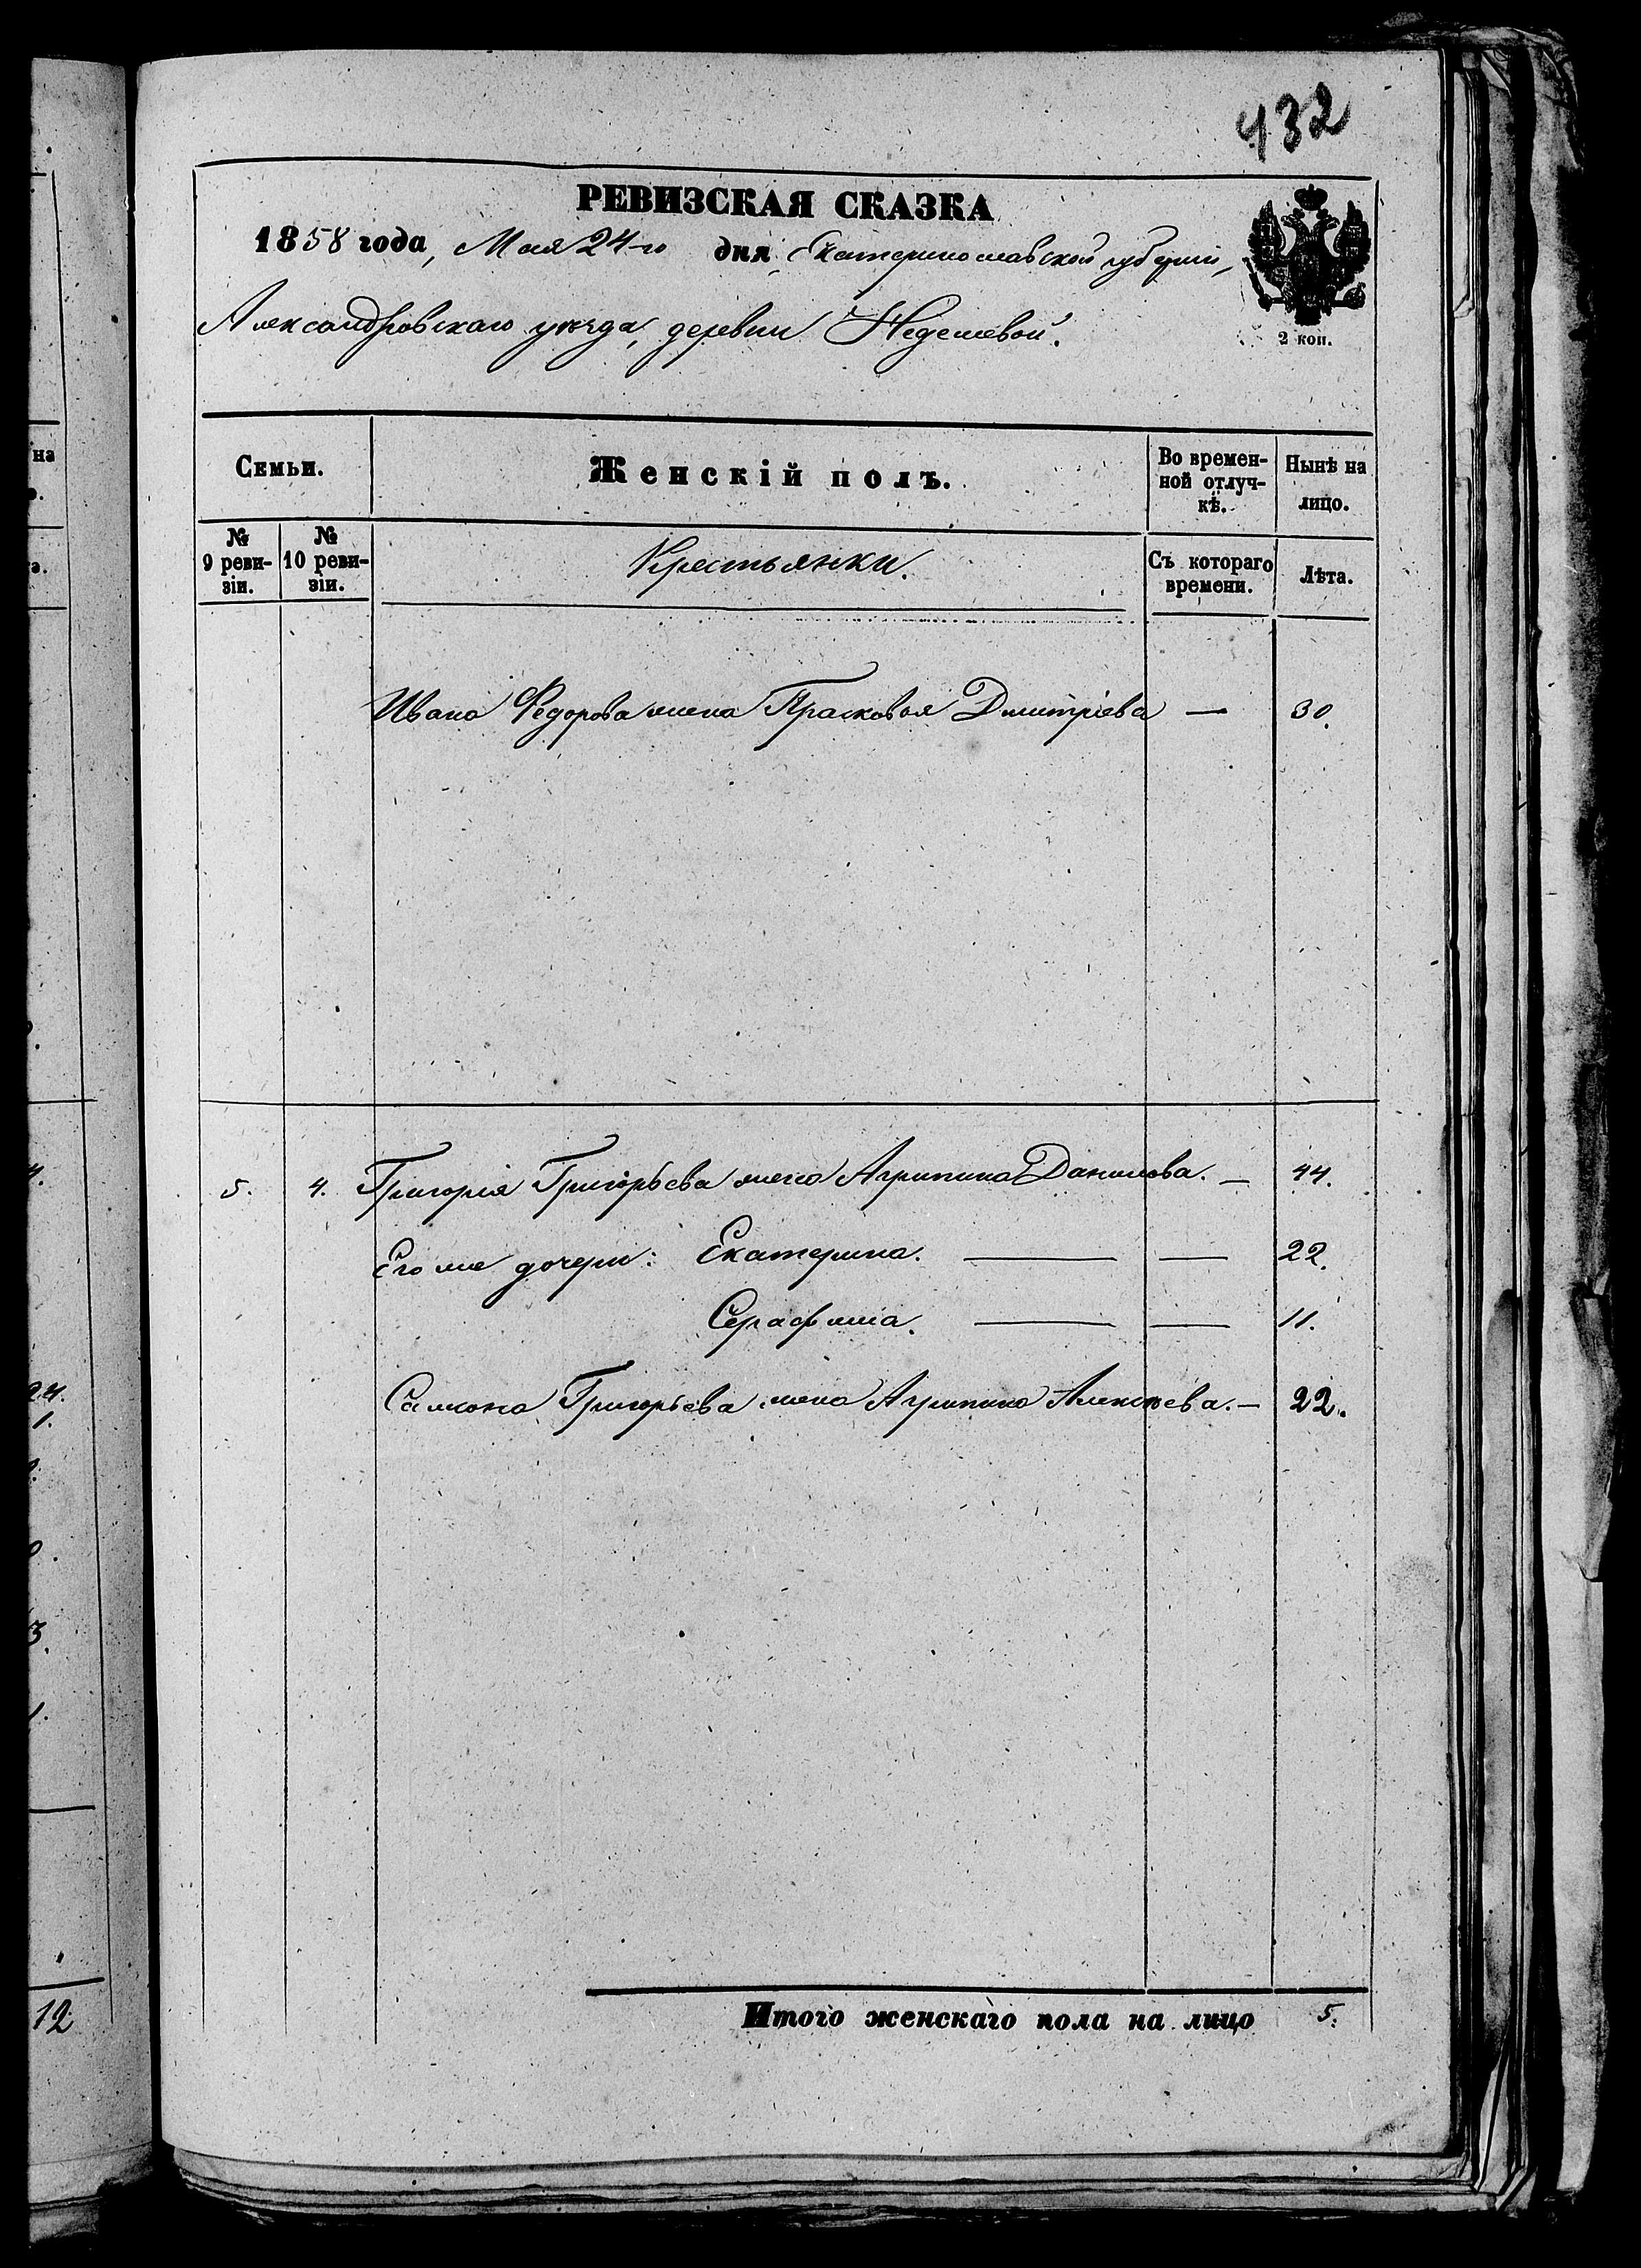 432
РЕВИЗСКАЯ СКАЗКА
1858 года, Мая 24-го дня, Екатеринославской губерніи,
Александровскаго уѣзда, деревни
2 коп.
Семьи.
Женскій полъ.
Во времен-
ной отлуч-
кѣ.
Нынѣ на
лицо.
№
9 реви-
зіи.
№
10 реви-
зіи.
Крестьянки.
Съ котораго
времени.
Лѣта.
Ивана Федорова жена Прасковья Дмитріева — 30.
5. 4. Григорія Григорьева жена Агрипина Данилова. — 44.
Его же дочери: Екатерина. — — 22.
— — 11.
Григорьева жена Агрипина Алексѣева. — 22.
Итого женскаго пола на лицо 5.
на
24.
1.
3.
1.
12